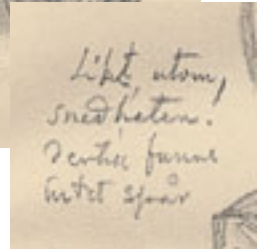 Likt, utom,
snedheten.
funne
intet spår